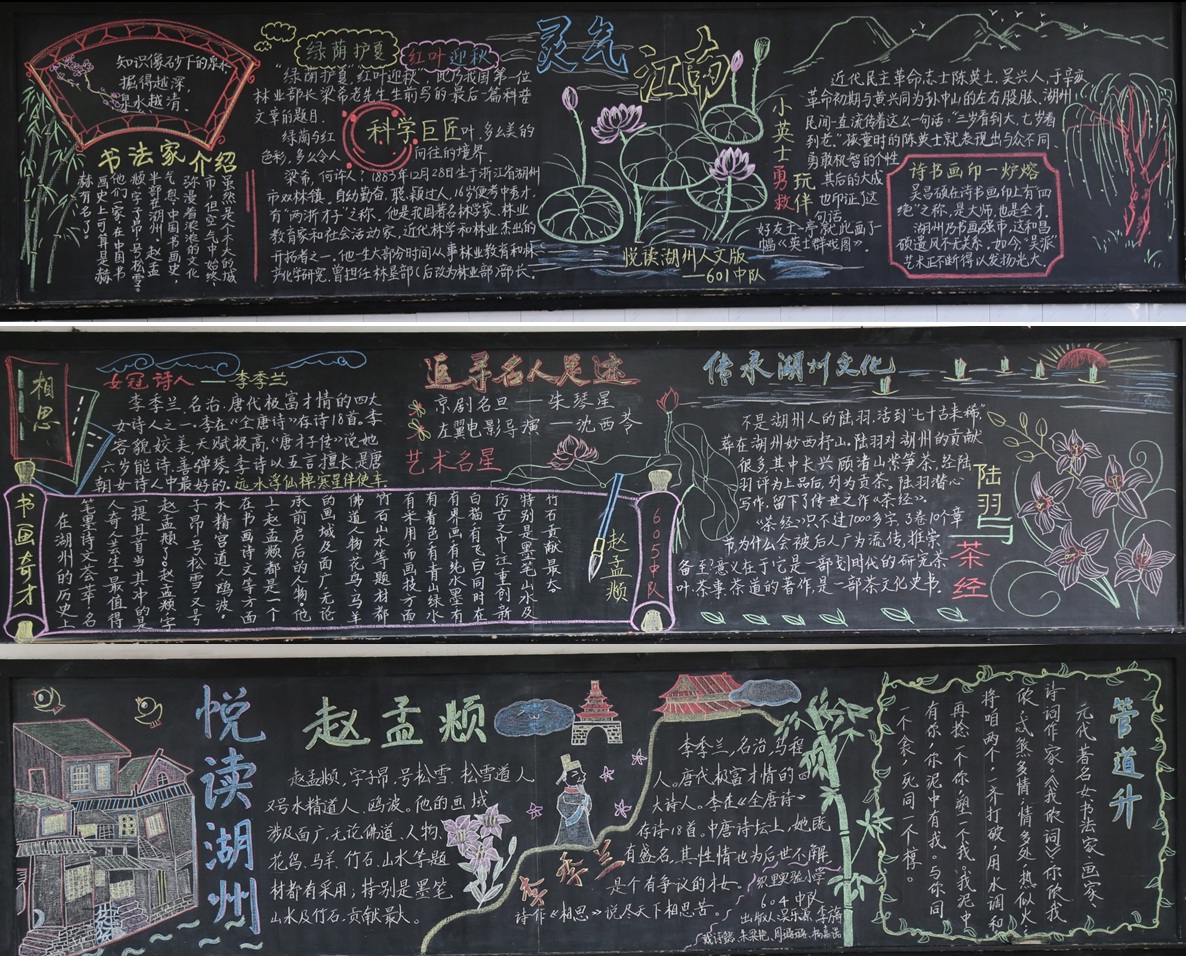 知识像砂下的泉水
掘得越深
泉水越清
书法家介绍
虽然是个不大的城
市，但空气中始终
弥漫着浓浓的文化
气息。中国书画史，
半部在湖州。赵孟
頫字子昂，号松雪。
他们一家，在中国书
画史上可算是赫
赫有名了。
绿荫护夏
红叶迎秋
“绿荫护夏，红叶迎秋”，此乃我国第一位
林业部长梁希老先生生前写的最后一篇科普
文章的题目。
绿荫与红叶，多么美的
色彩，多么令人向往的境界。
科学巨匠
梁希，何许人？1883年12月28日生于浙江省湖州
市双林镇。自幼勤奋，聪颖过人，16岁便考中秀才，
有“两浙才子”之称。他是我国著名林学家、林业
教育家和社会活动家，近代林学和林业杰出的
开拓者之一，他一生大部分时间从事林业教育和林
兴化学研究，曾担任林垦部（后改为林业部）部长。
灵气
江南
悦读湖州人文版
——601中队
小英士勇救玩伴
近代民主革命志士陈英士，吴兴人，于辛亥
革命初期与黄兴同为孙中山的左右股肱，湖州
民间一直流传着这么一句话：“三岁看到大，七岁看
到老”。孩童时的陈英士就表现出与众不同、
勇敢机智的个性
其后的大成
也印证了这
一句话。
好友王一亭就此画了一
幅《英士群戏图》。
诗书画印一炉熔
吴昌硕在诗书画印上有“四
绝”之称，是大师，也是全才。
湖州乃书画强市，这和昌
硕遗风不无关系，如今，“吴派”
艺术正不断得以发扬光大。
相思
女冠诗人——李季兰
李季兰，名冶，唐代极富才情的四大
女诗人之一，李在《全唐诗》存诗18首。李
容貌姣美，天赋极高，《唐才子传》说她
六岁能诗，善弹琴。李诗以五言擅长，是唐
朝女诗人中最好的。远水浮仙棹，寒星伴使车。
追寻名人足迹
京剧名旦——朱琴星
左翼电影导演——沈西苓
艺术名星
书画奇才
在湖州的历史上
笔墨诗文荟萃，名
人奇人丛生。最值得
一提且首当其冲的是
赵孟頫了。赵孟頫，字
子昂，号松雪，又号
水精宫道人、鸥波。
在书画诗文等方面
上，赵孟頫都是一个
承前启后的人物。他
的画域及面广，无论
佛道、人物、花鸟、马羊
竹石、山水等题材都
有采用，而画技方面
有着色，有青青山绿水
有界画，有纯水墨，有
白描，有飞白，同时在
仿古之中注重创新
特别是墨笔山水及
竹石贡献最大。
赵孟頫
605中队
传承湖州文化
不是湖州人的陆羽，活到“七十古来稀”，
葬在湖州妙西杼山，陆羽对湖州的贡献
很多，其中长兴顾渚山紫笋茶，经陆
羽评为上品后，列为贡茶。陆羽潜心
写作，留下了传世之作《茶经》。
《茶经》只不过7000多字，3卷10个章
节，为什么会被后人广为流传，推崇
备至，意义在于它是一部划时代的研究茶
叶、茶事、茶道的著作，是一部茶文化史书。
陆羽与茶经
悦读湖州
赵孟頫
赵孟頫，字子昂，号松雪，松雪道人
又号水精道人、鸥波。他的画域
涉及面广，无论佛道、人物、
花鸟、马羊、竹石、山水等题
材都有采用，特别是墨笔
山水及竹石，贡献最大。
李季兰
李季兰，名冶，乌程
人。唐代极富才情的四
大诗人。李在《全唐诗》
存诗18首。中唐诗坛上，她既
有盛名，其性情也为后世不解，
是个有争议的才女。
诗作《相思》说尽天下相思苦。
604中队
管道升
元代著名女书法家、画家、
诗词作家。《我侬词》：你侬我
侬，忒煞多情，情多处，热似火；
将咱两个，一齐打破，用水调和；
再捻一个你，塑一个我。我泥中
有你，你泥中有我。与你同
一个衾，死同一个椁。